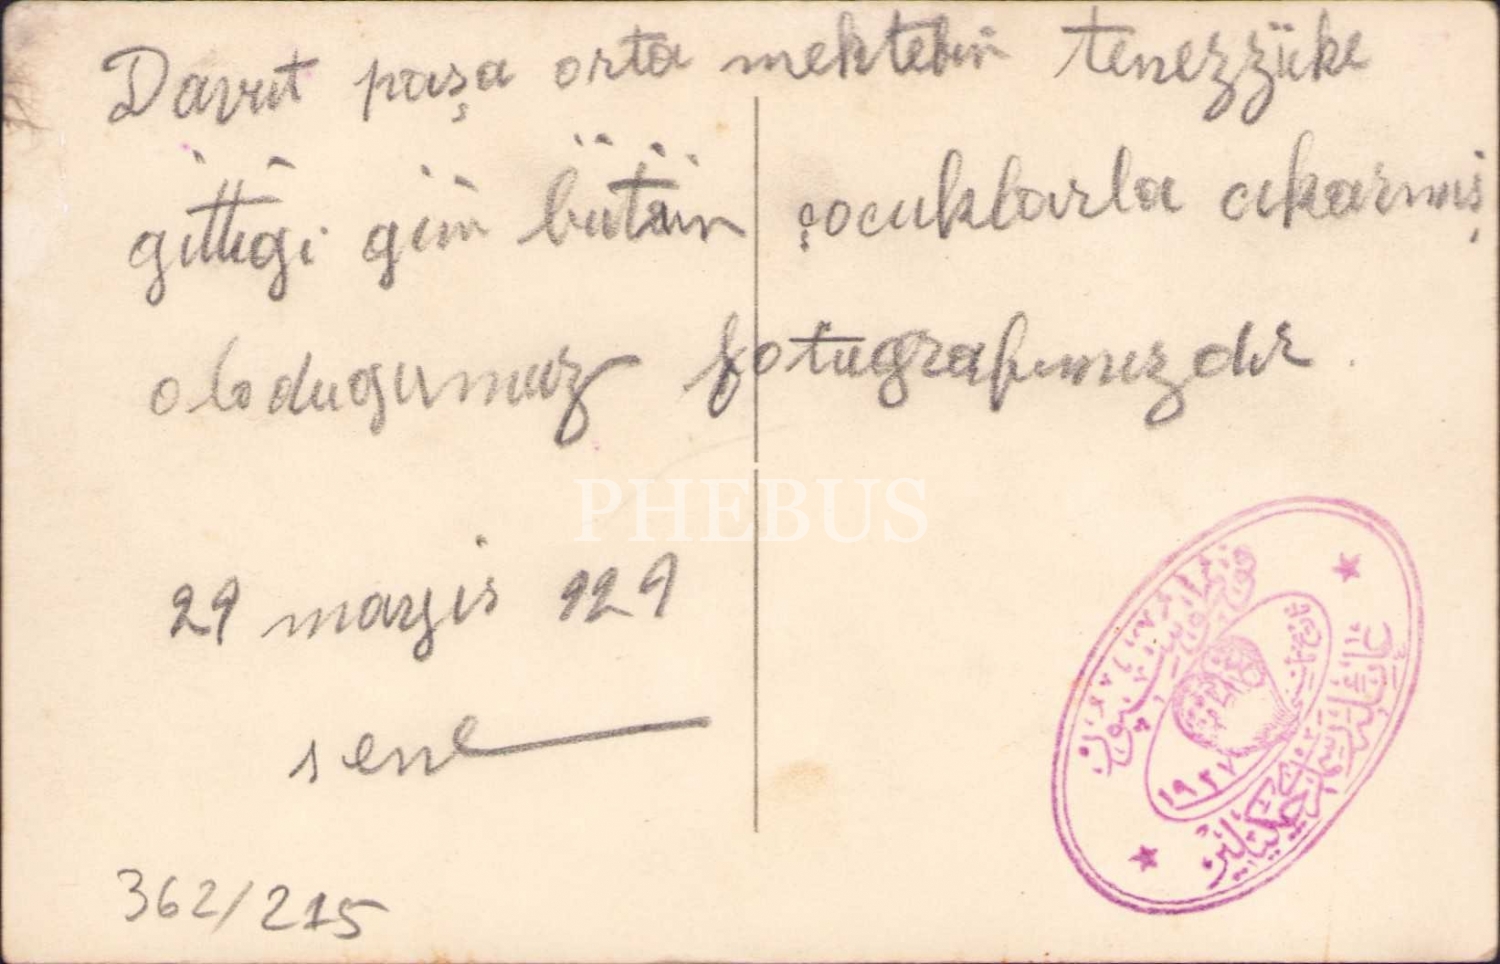 Davut paşa orta mektebin tenezzüke
gittigi gün bütün çocuklarla cıkarmış
oldugumuz fotugrafımızdır.
PHEBUS
29 mayis 929
sene
362/215
١٩٢٧